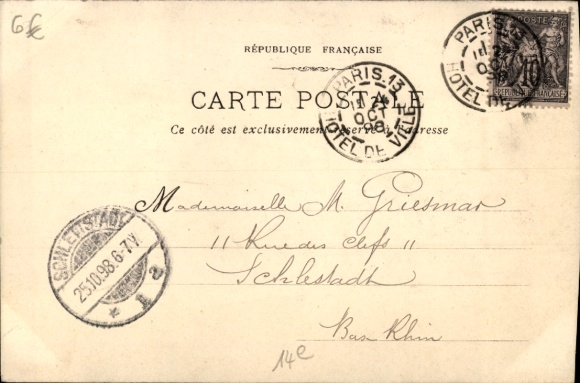 6€
RÉPUBLIQUE FRANÇAISE
CARTE POSTALE
Ce côté est exclusivement réservé à l'adresse
PARIS.13
24
OCT
98
HOTEL DE VILLE
PARIS.13
OCT
98
HOTEL DE
POSTES
10
RÉPUBLIQUE FRANÇAISE
Mademoiselle M. Griesmar
11 Rue des Clefs 11
Schlestadt
Bas Rhin
SCHLETTSTADT
25.10.98.6-7V.
* 1 a
14e